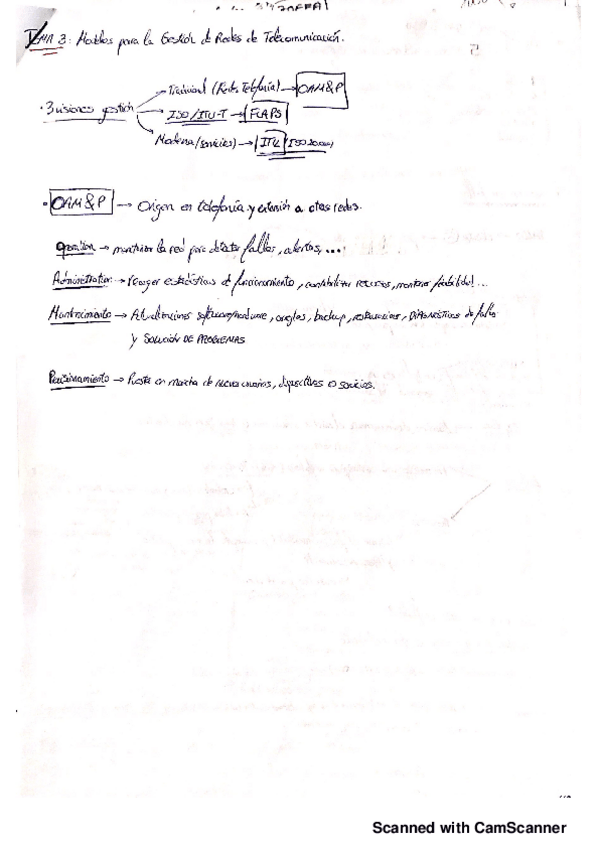 TEMA 3: Modelos para la Gestión de Redes de Telecomunicación.
Tradicional (Redes Telefonía) → OAM&P
· 3 visiones gestión
ISO/ITU-T → FCAPS
Moderna (servicios) → ITIL / ISO 20000
· OAM&P → Origen en telefonía y extensión a otras redes.
Operation → monitorizar la red para detectar fallos, alertas, ...
Administration → recoger estadísticas de funcionamiento, contabilizar recursos, mantener fiabilidad...
Mantenimiento → Actualizaciones software/hardware, arreglos, backup, restauraciones, DIAGNÓSTICOS de fallos
y SOLUCIÓN DE PROBLEMAS
Provisionamiento → Puesta en marcha de nuevos usuarios, dispositivos o servicios.
Scanned with CamScanner